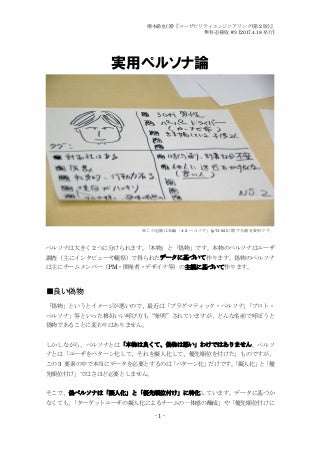 樽本徹也(著)『ユーザビリティエンジニアリング(第2版)』
無料追補版 #3 [2017.4.18 発行]
実用ペルソナ論
30代 男性
ペーパードライバー
NO.2
ペルソナは大きく2つに分けられます。「本物」と「偽物」です。本物のペルソナはユーザ
調査(主にインタビューや観察)で得られたデータに基づいて作ります。偽物のペルソナ
は主にチームメンバー(PM・開発者・デザイナ等)の主観に基づいて作ります。
■良い偽物
「偽物」というとイメージが悪いので、最近は「プラグマティック・ペルソナ」「プロト・
ペルソナ」等といった格好いい呼び方も“発明”されていますが、どんな名前で呼ぼうと
偽物であることに変わりはありません。
しかしながら、ペルソナとは「本物は良くて、偽物は悪い」わけではありません。ペルソ
ナとは「ユーザをパターン化して、それを擬人化して、優先順位を付けた」ものですが、
この3要素の中で本当にデータを必要とするのは「パターン化」だけです。「擬人化」と「優
先順位付け」ではさほど必要としません。
そこで、偽ペルソナは「擬人化」と「優先順位付け」に特化しています。データに基づか
なくても、「ターゲットユーザの擬人化によるチームの一体感の醸成」や「優先順位付けに
- 1 -